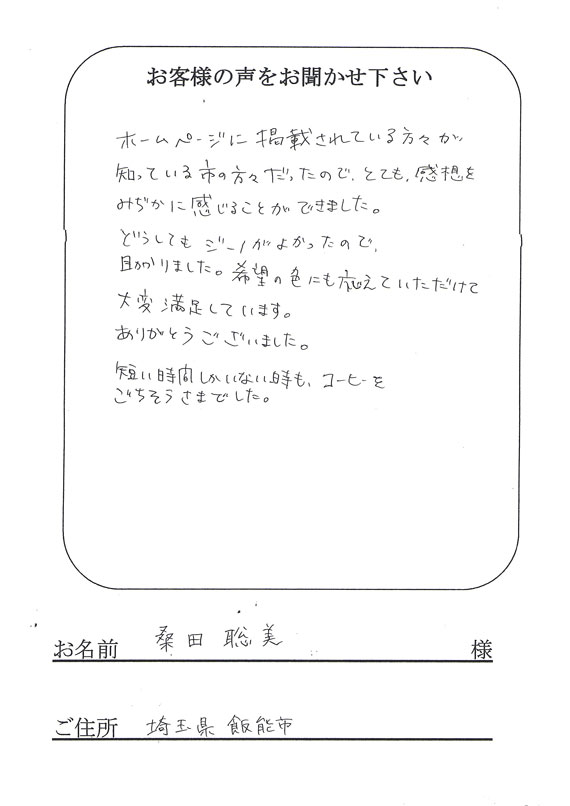 お客様の声をお聞かせ下さい
ホームページに掲載されている方々が
知っている市の方々だったので、とても、感想を
みぢかに感じることができました。
どうしてもジーノがよかったので、
助かりました。希望の色にも応えていただけて
大変満足しています。
ありがとうございました。
短い時間しかいない時も、コーヒーを
ごちそうさまでした。
お名前 桑田 聡美 様
ご住所 埼玉県 飯能市